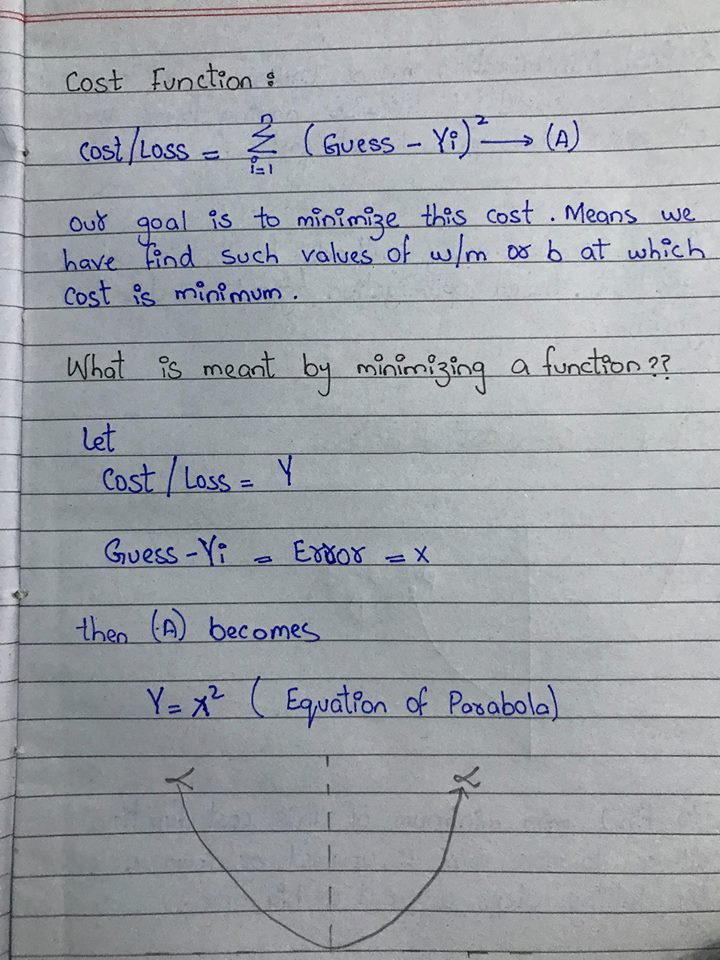 Cost Function :
Cost/Loss = n Σ i=1 (Guess - Yi)² → (A)
our goal is to minimize this cost. Means we
have find such values of w/m or b at which
cost is minimum.
What is meant by minimizing a function??
Let
Cost / Loss = Y
Guess - Yi = Error = x
then (A) becomes
Y = x² ( Equation of Parabola)
∝ ∝